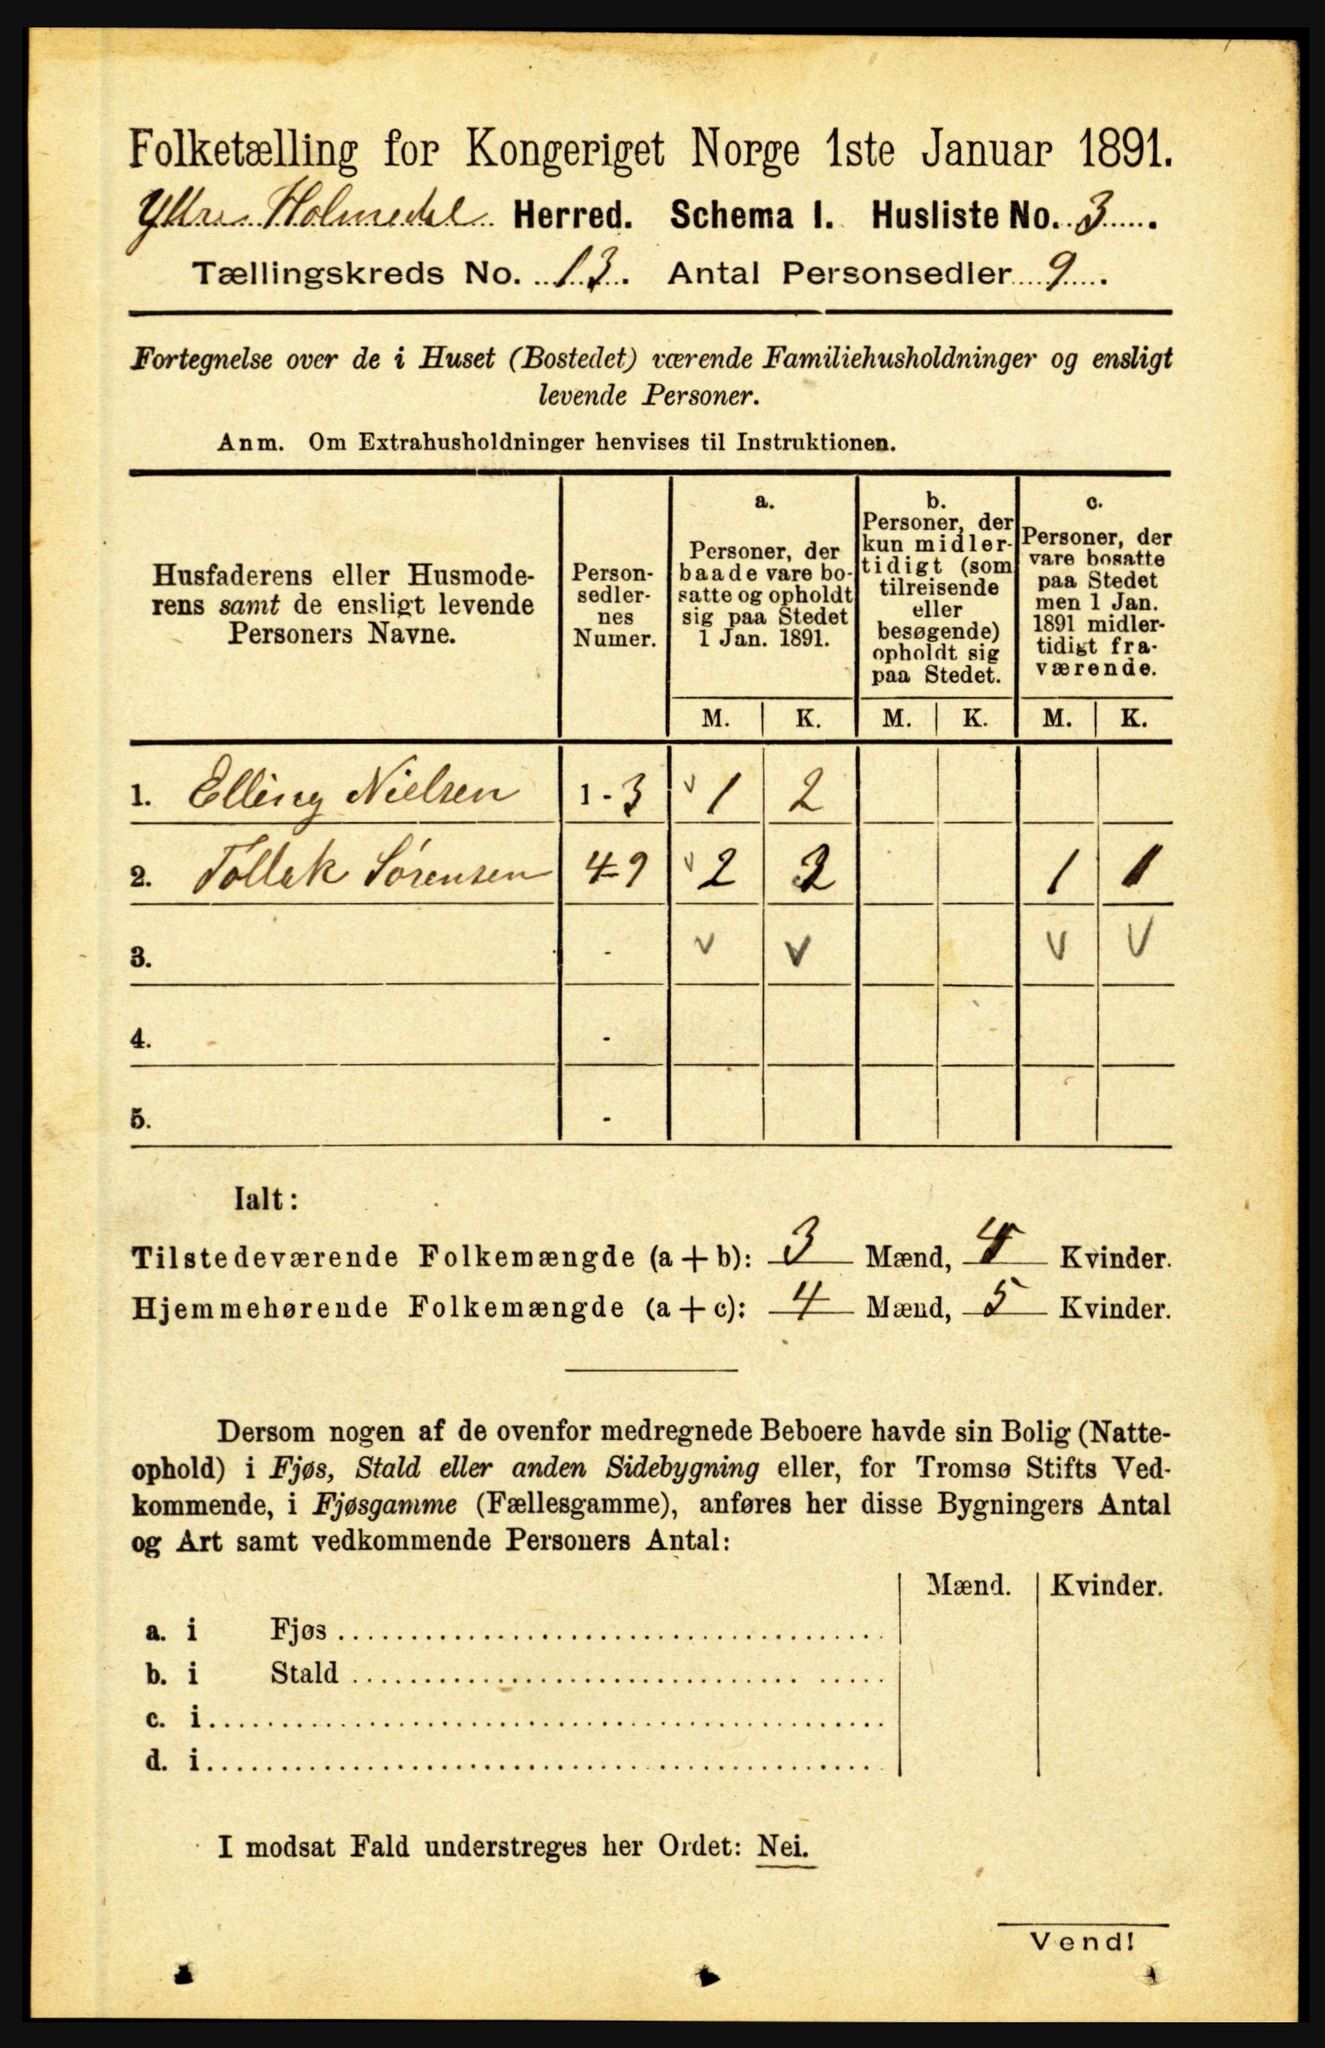 Folketælling for Kongeriget Norge 1ste Januar 1891.
Yttre Holmedal Herred. Schema I. Husliste No. 3.
Tællingskreds No. 13. Antal Personsedler 9.
Fortegnelse over de i Huset (Bostedet) værende Familiehusholdninger og ensligt
levende Personer.
Anm. Om Extrahusholdninger henvises til Instruktionen.
Husfaderens eller Husmode-
rens samt de ensligt levende
Personers Navne.
Person-
sedler-
nes
Numer.
a.
Personer, der
baade vare bo-
satte og opholdt
sig paa Stedet
1 Jan. 1891.
b.
Personer, der
kun midler-
tidigt (som
tilreisende
eller
besøgende)
opholdt sig
paa Stedet.
c.
Personer, der
vare bosatte
paa Stedet
men 1 Jan.
1891 midler-
tidigt fra-
værende.
M. K. M. K. M. K.
1. Elling Nielsen 1-3 v 1 2
2. Tollak Sørensen 4-9 v 2 2 1 1
3. - v v v v
4. -
5. -
Ialt:
Tilstedeværende Folkemængde (a + b): 3 Mænd, 4 Kvinder.
Hjemmehørende Folkemængde (a + c): 4 Mænd, 5 Kvinder.
Dersom nogen af de ovenfor medregnede Beboere havde sin Bolig (Natte-
ophold) i Fjøs, Stald eller anden Sidebygning eller, for Tromsø Stifts Ved-
kommende, i Fjøsgamme (Fællesgamme), anføres her disse Bygningers Antal
og Art samt vedkommende Personers Antal:
Mænd. Kvinder.
a. i Fjøs
b. i Stald
c. i
d. i
I modsat Fald understreges her Ordet: Nei.
Vend!